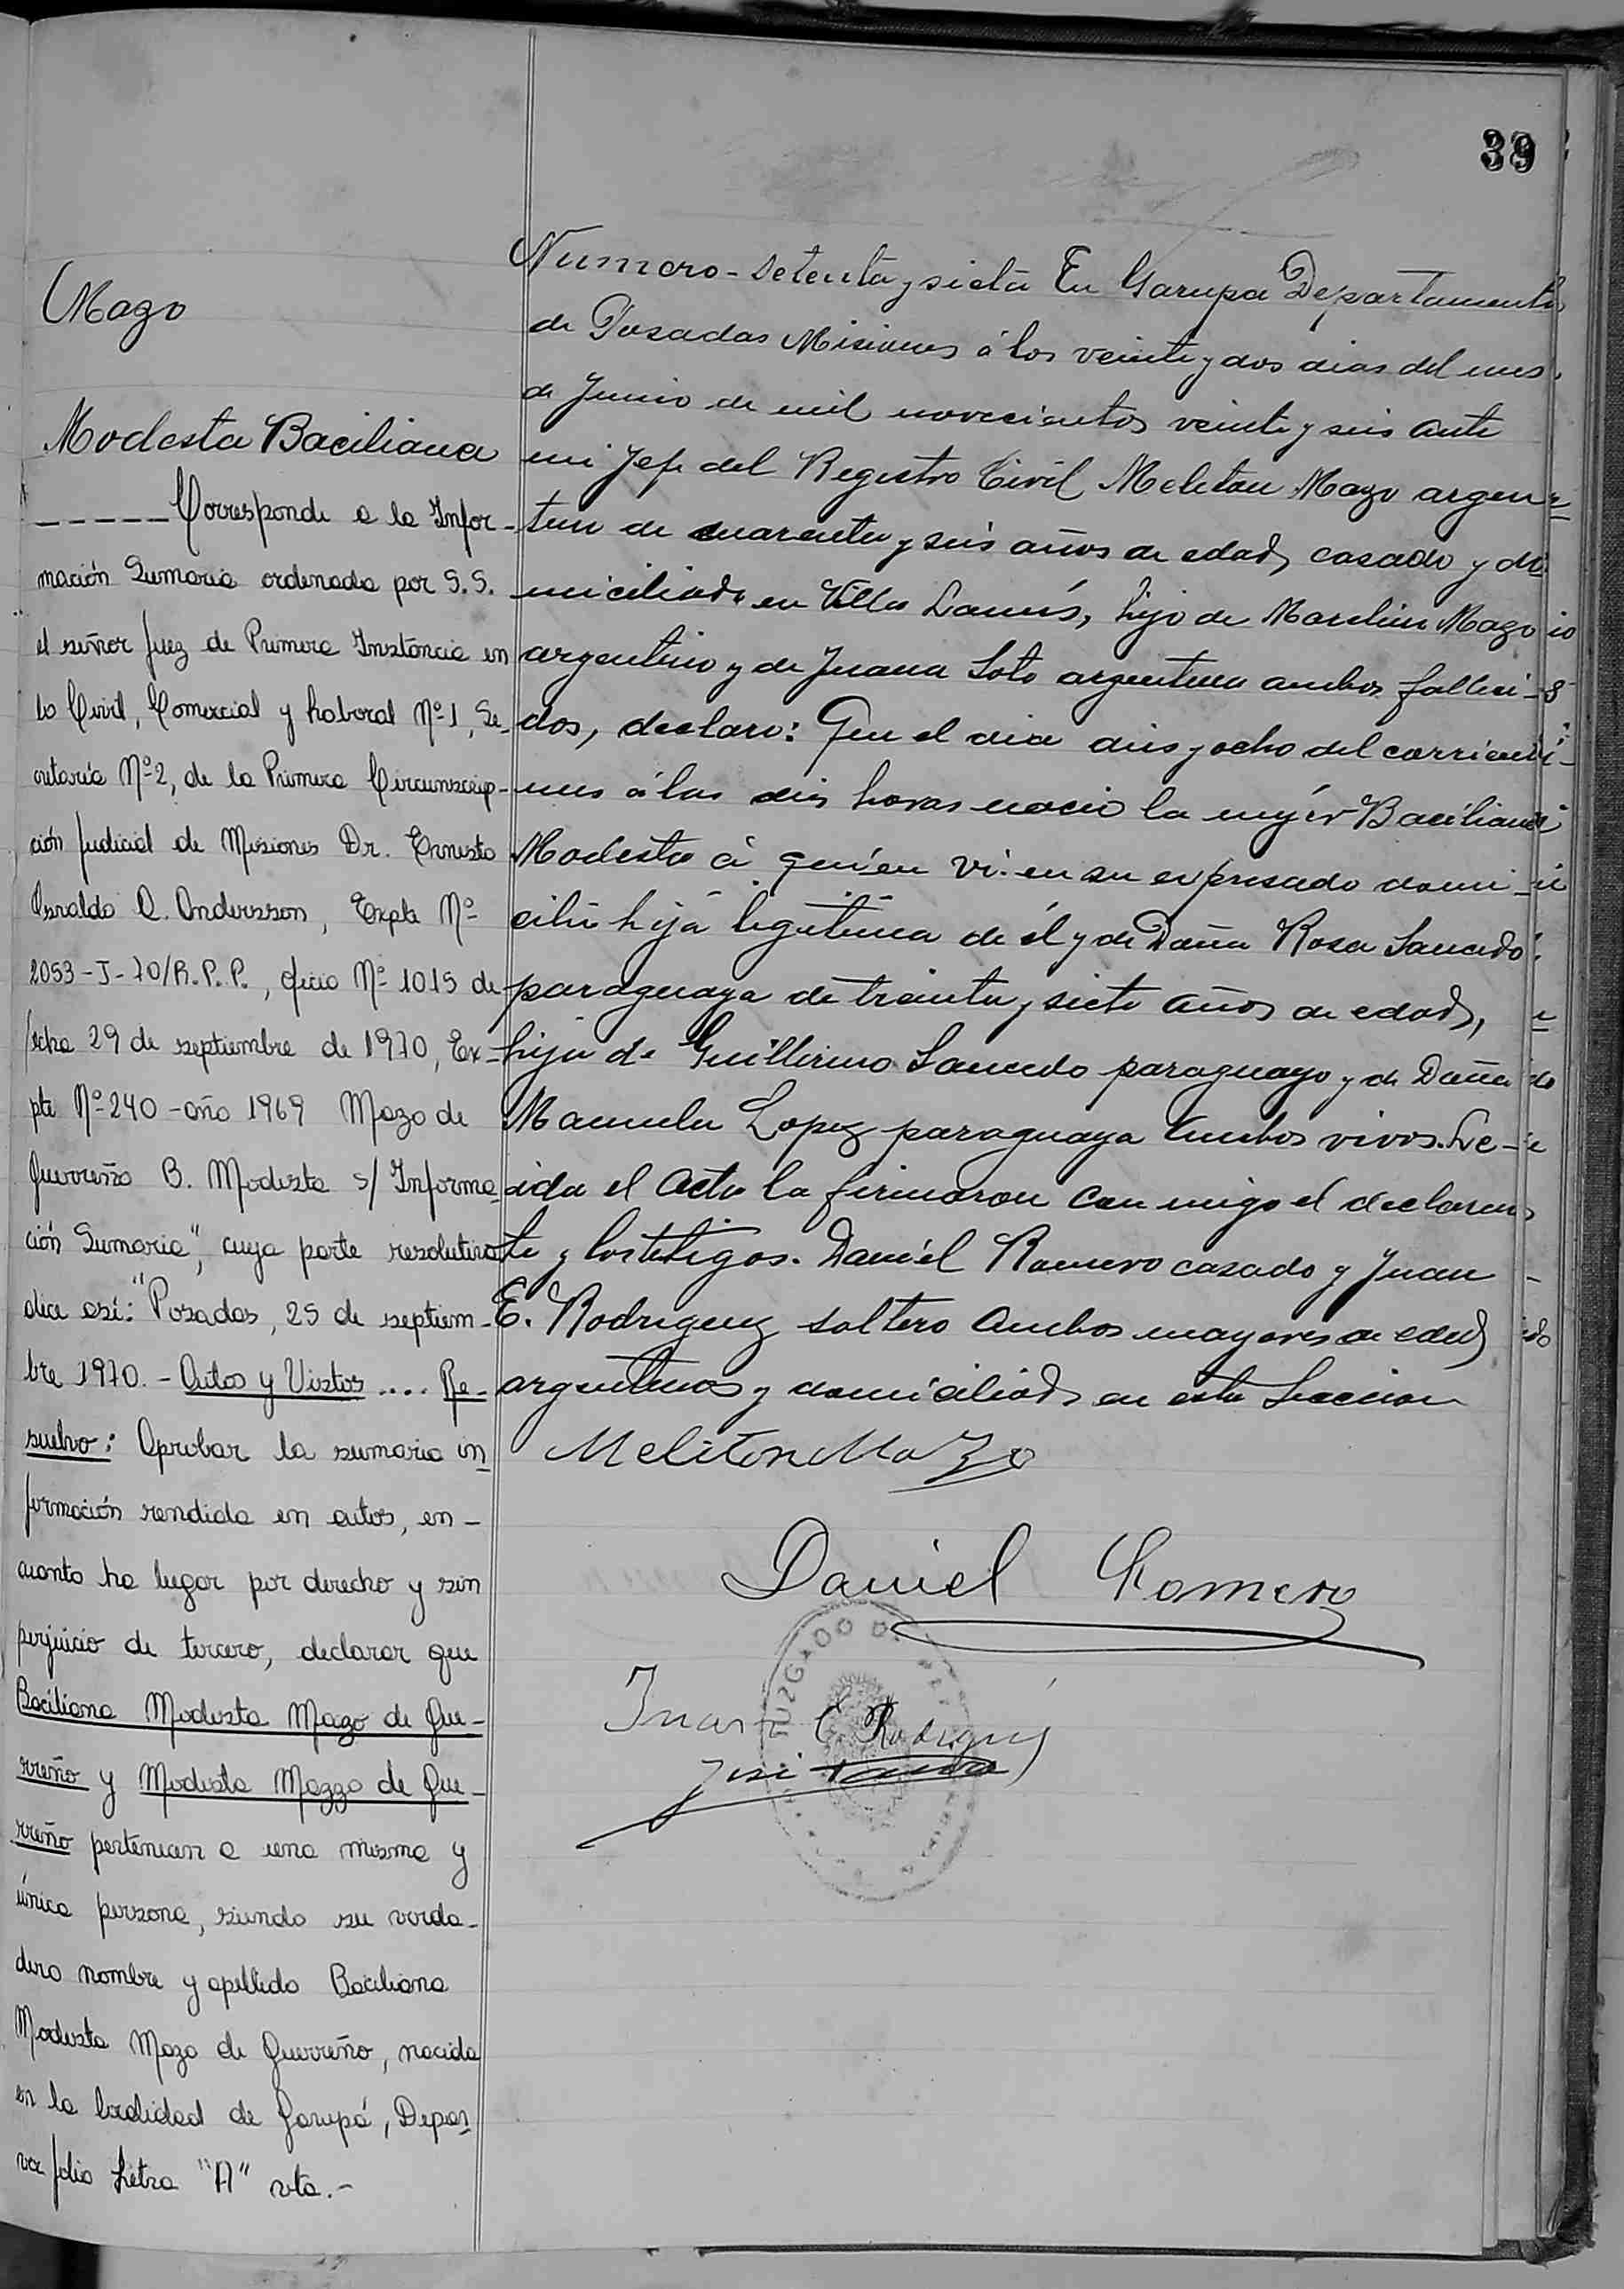 39
Mazo
Modesta Baciliana
Corresponde a la Infor-
mación Sumaria ordenada por S.S.
el señor Juez de Primera Instancia en
lo Civil, Comercial y Laboral Nº 1, Se-
cretaría Nº 2, de la Primera Circunscrip-
ción Judicial de Misiones Dr. Ernesto
Osvaldo A. Andersson, Expte Nº
2053-J-70/R.P.P., oficio Nº 1015 de
fecha 29 de septiembre de 1970, Ex-
pte Nº 240 - año 1969 Mazo de
Guerreño B. Modesta s/ Informa
ción Sumaria", cuya parte resolutiva
dice así: "Posadas, 25 de septiem-
bre 1970. - Autos y Vistos .... Re-
suelvo: Aprobar la sumaria in
formación rendida en autos, en-
cuanto ha lugar por derecho y sin
perjuicio de tercero, declarar que
Baciliana Modesta Mazo de Gue-
rreño y Modesta Mazzo de Gue-
rreño pertenecen a una misma y
única persona, siendo su verda-
dero nombre y apellido Baciliana
Modesta Mazo de Guerreño, nacida
en la localidad de Garupá, Depar
folio Letra "A" vta.-
Numero - Setenta y siete En Garupa Departamento
de Posadas Misiones á los veinte y dos dias del mes
de Junio de mil novecientos veinte y seis ante
mi Jefe del Registro Civil Meliton Mazo argen
tino de cuarenta y seis años de edad, casado y do
miciliado en Villa Lanús, hijo de Marcelino Mazo
argentino y de Juana Soto argentina ambos falleci-
dos, declaro: Que el dia dies y ocho del corriente
mes á las dies horas nacio la mujer Baciliana
Modesta á quién vi en su expresado domi-
cilio hija legitima de él y de Doña Rosa Saucedo
paraguaya de treinta y siete años de edad,
hija de Guillermo Saucedo paraguayo y de Doña
Manuela Lopez paraguaya ambos vivos. Le-
ida el acta la firmaron con migo el declaran
te y los testigos. Daniél Romero casado y Juan
E. Rodriguez soltero ambos mayores de edad
argentinos y domiciliados en esta Seccion
Meliton Mazo
Daniel Romero
Juan E Rodriguez
José
JUZGADO D